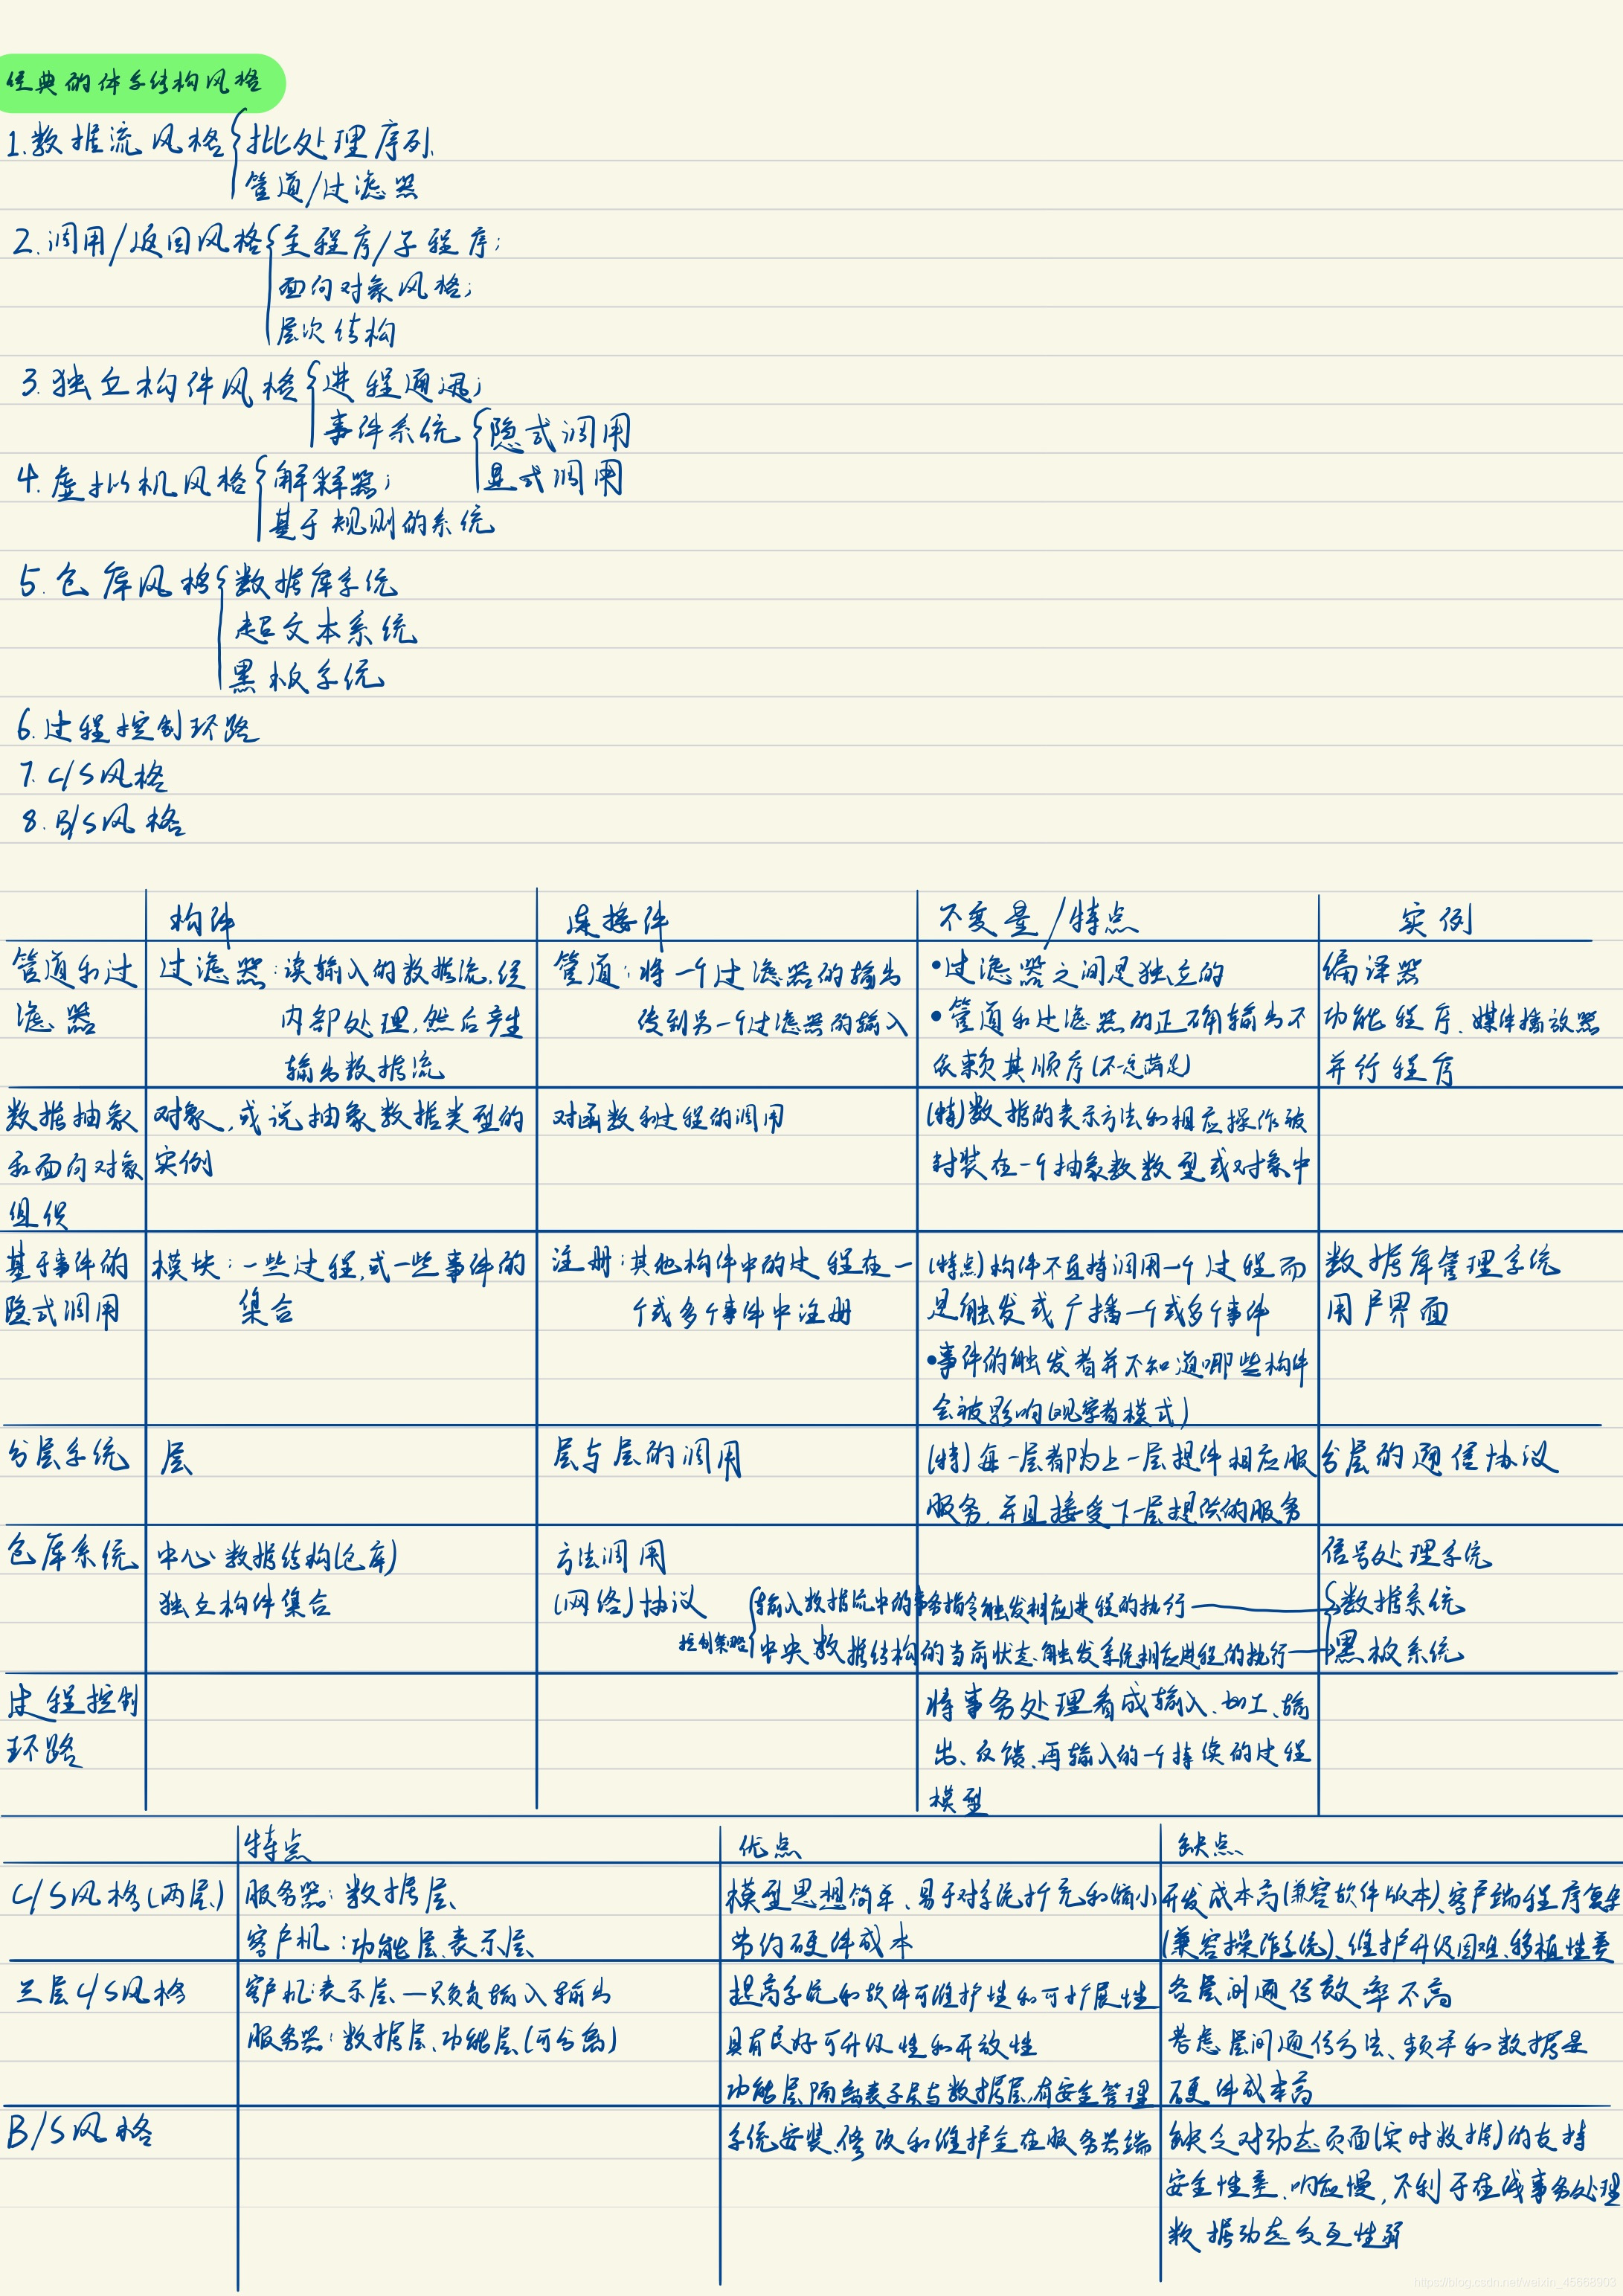 经典的体系结构风格
1.数据流风格{批处理序列、
管道/过滤器
2.调用/返回风格{主程序/子程序;
面向对象风格;
层次结构
3.独立构件风格{进程通迅;
事件系统{隐式调用
显式调用
4.虚拟机风格{解释器;
基于规则的系统
5.仓库风格{数据库系统
超文本系统
黑板系统
6.过程控制环路
7.C/S风格
8.B/S风格
构件 连接件 不变量/特点 实例
管道和过
滤器
过滤器:读输入的数据流,经
内部处理,然后产生
输出数据流
管道:将一个过滤器的输出
传到另一个过滤器的输入
•过滤器之间是独立的
•管道和过滤器的正确输出不
依赖其顺序(不一定满足)
编译器
功能程序、媒体播放器
并行程序
数据抽象
和面向对象
组织
对象,或说抽象数据类型的
实例
对函数和过程的调用
(特)数据的表示方法和相应操作被
封装在一个抽象数数型或对象中
基于事件的
隐式调用
模块:一些过程,或一些事件的
集合
注册:其他构件中的过程在一
个或多个事件中注册
(特点)构件不直接调用一个过程而
是触发或广播一个或多个事件
•事件的触发者并不知道哪些构件
会被影响(观察者模式)
数据库管理系统
用户界面
分层系统
层
层与层的调用
(特)每一层都为上一层提件相应服
服务,并且接受下一层提供的服务
分层的通信协议
仓库系统
中心数据结构(仓库)
独立构件集合
方法调用
(网络)协议
控制策略{输入数据流中的事务指令触发相应进程的执行
中央数据结构的当前状态触发系统相应进程的执行
信号处理系统
数据系统
黑板系统
过程控制
环路
将事务处理看成输入、加工、输
出、反馈、再输入的一个持续的过程
模型
特点 优点 缺点
C/S风格(两层)
服务器:数据层、
客户机:功能层、表示层、
模型思想简单、易于对系统扩充和缩小
节约硬件成本
开发成本高(兼容软件版本)、客户端程序复杂
(兼容操作系统)、维护升级困难、移植性差
三层C/S风格
客户机:表示层—只负责输入输出
服务器:数据层、功能层(可分离)
提高系统和软件可维护性和可扩展性
具有良好可升级性和开放性
功能层隔离表示层与数据层,有安全管理
各层间通信效率不高
考虑层间通信方法、频率和数据量
硬件成本高
B/S风格
系统安装、修改和维护全在服务器端
缺乏对动态页面(实时数据)的支持
安全性差、响应慢,不利于在线事务处理
数据动态交互性弱
https://blog.csdn.net/weixin_45668903